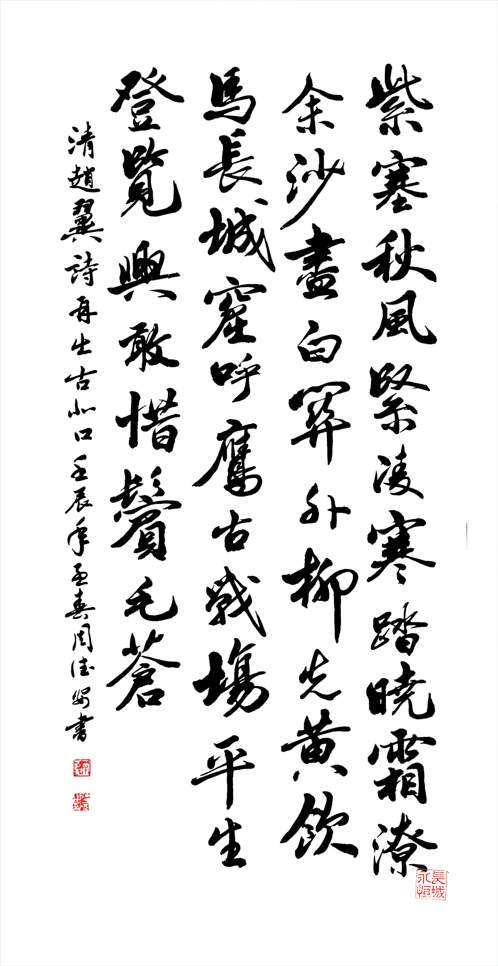 紫塞秋風緊凌寒踏曉霜潦
余沙盡白關外柳先黃飲
馬長城窟呼鷹古戰場平生
登覽興敢惜鬢毛蒼
清趙翼詩再出古北口壬辰年孟春周德安書
長城永恒